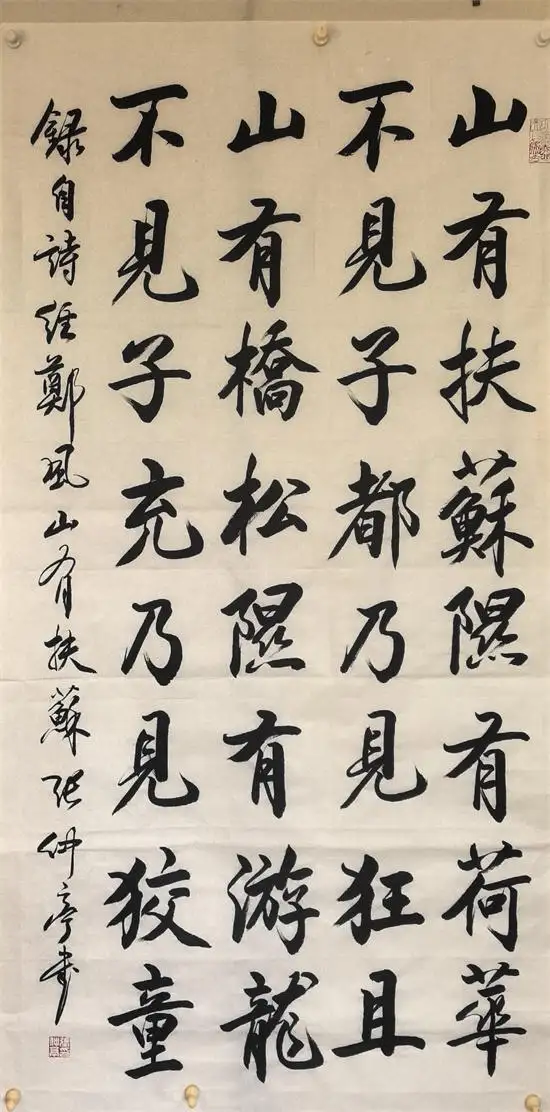 山有扶蘇隰有荷華
不見子都乃見狂且
山有橋松隰有游龍
不見子充乃見狡童
録自詩经鄭風山有扶蘇张仲亭书